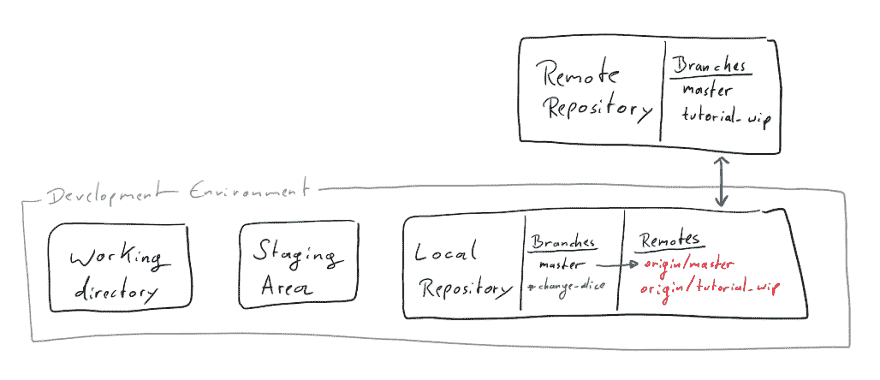 Remote
Repository
Branches
master
tutorial_wip
Development Environment
Working
directory
Staging
Area
Local
Repository
Branches
master
*change-alice
Remotes
origin/master
origin/tutorial_wip